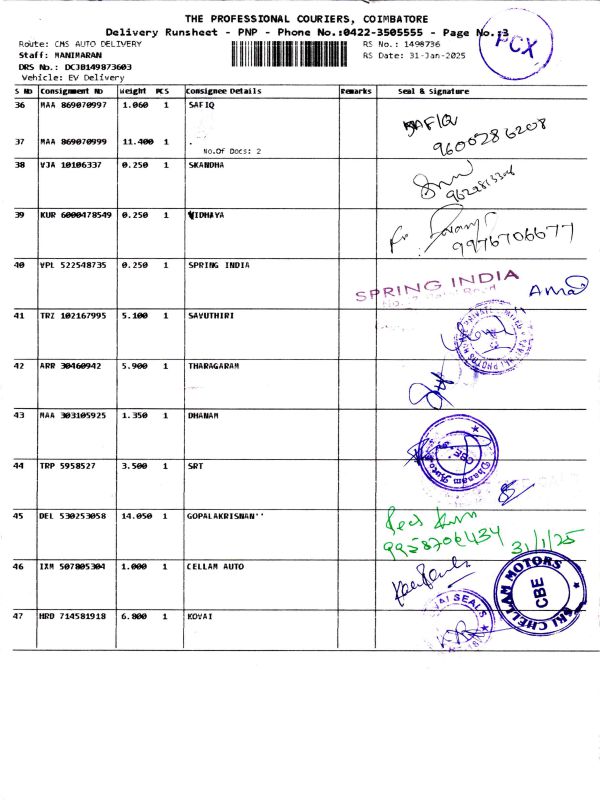 THE PROFESSIONAL COURIERS, COIMBATORE
Delivery Runsheet - PNP - Phone No.:0422-3505555 - Page No.:3
PCX
Route: CMS AUTO DELIVERY
RS No.: 1498736
Staff: MANIMARAN
RS Date: 31-Jan-2025
DRS No.: DCJB149873603
Vehicle: EV Delivery
S No Consignment No Weight PCS Consignee Details Remarks Seal & Signature
36 MAA 869070997 1.060 1 SAFIQ
SAFIQ
9600286208
37 MAA 869070999 11.400 1 .
No.Of Docs: 2
38 VJA 10106337 0.250 1 SKANDHA
39 KUR 6000478549 0.250 1 VIDHAYA
9976706677
40 VPL 522548735 0.250 1 SPRING INDIA
SPRING INDIA
41 TRZ 102167995 5.100 1 SAVUTHIRI
42 ARR 30460942 5.900 1 THARAGARAM
43 MAA 303105925 1.350 1 DHANAM
CBE
44 TRP 5958527 3.500 1 SRT
45 DEL 530253058 14.050 1 GOPALAKRISNAN''
9958706434
31/1/25
46 IXM 507805304 1.000 1 CELLAM AUTO
SRI CHELLAM MOTORS
CBE
47 HRD 714581918 6.800 1 KOVAI
VAI SEALS